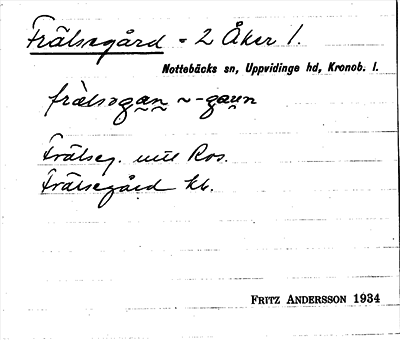 Frälsegård = 2 Åker 1.
Nottebäcks sn, Uppvidinge hd, Kronob. l.
frälsegan ~ -gaun
Frälseg. utl Ros.
Frälsegård kb.
FRITZ ANDERSSON 1934